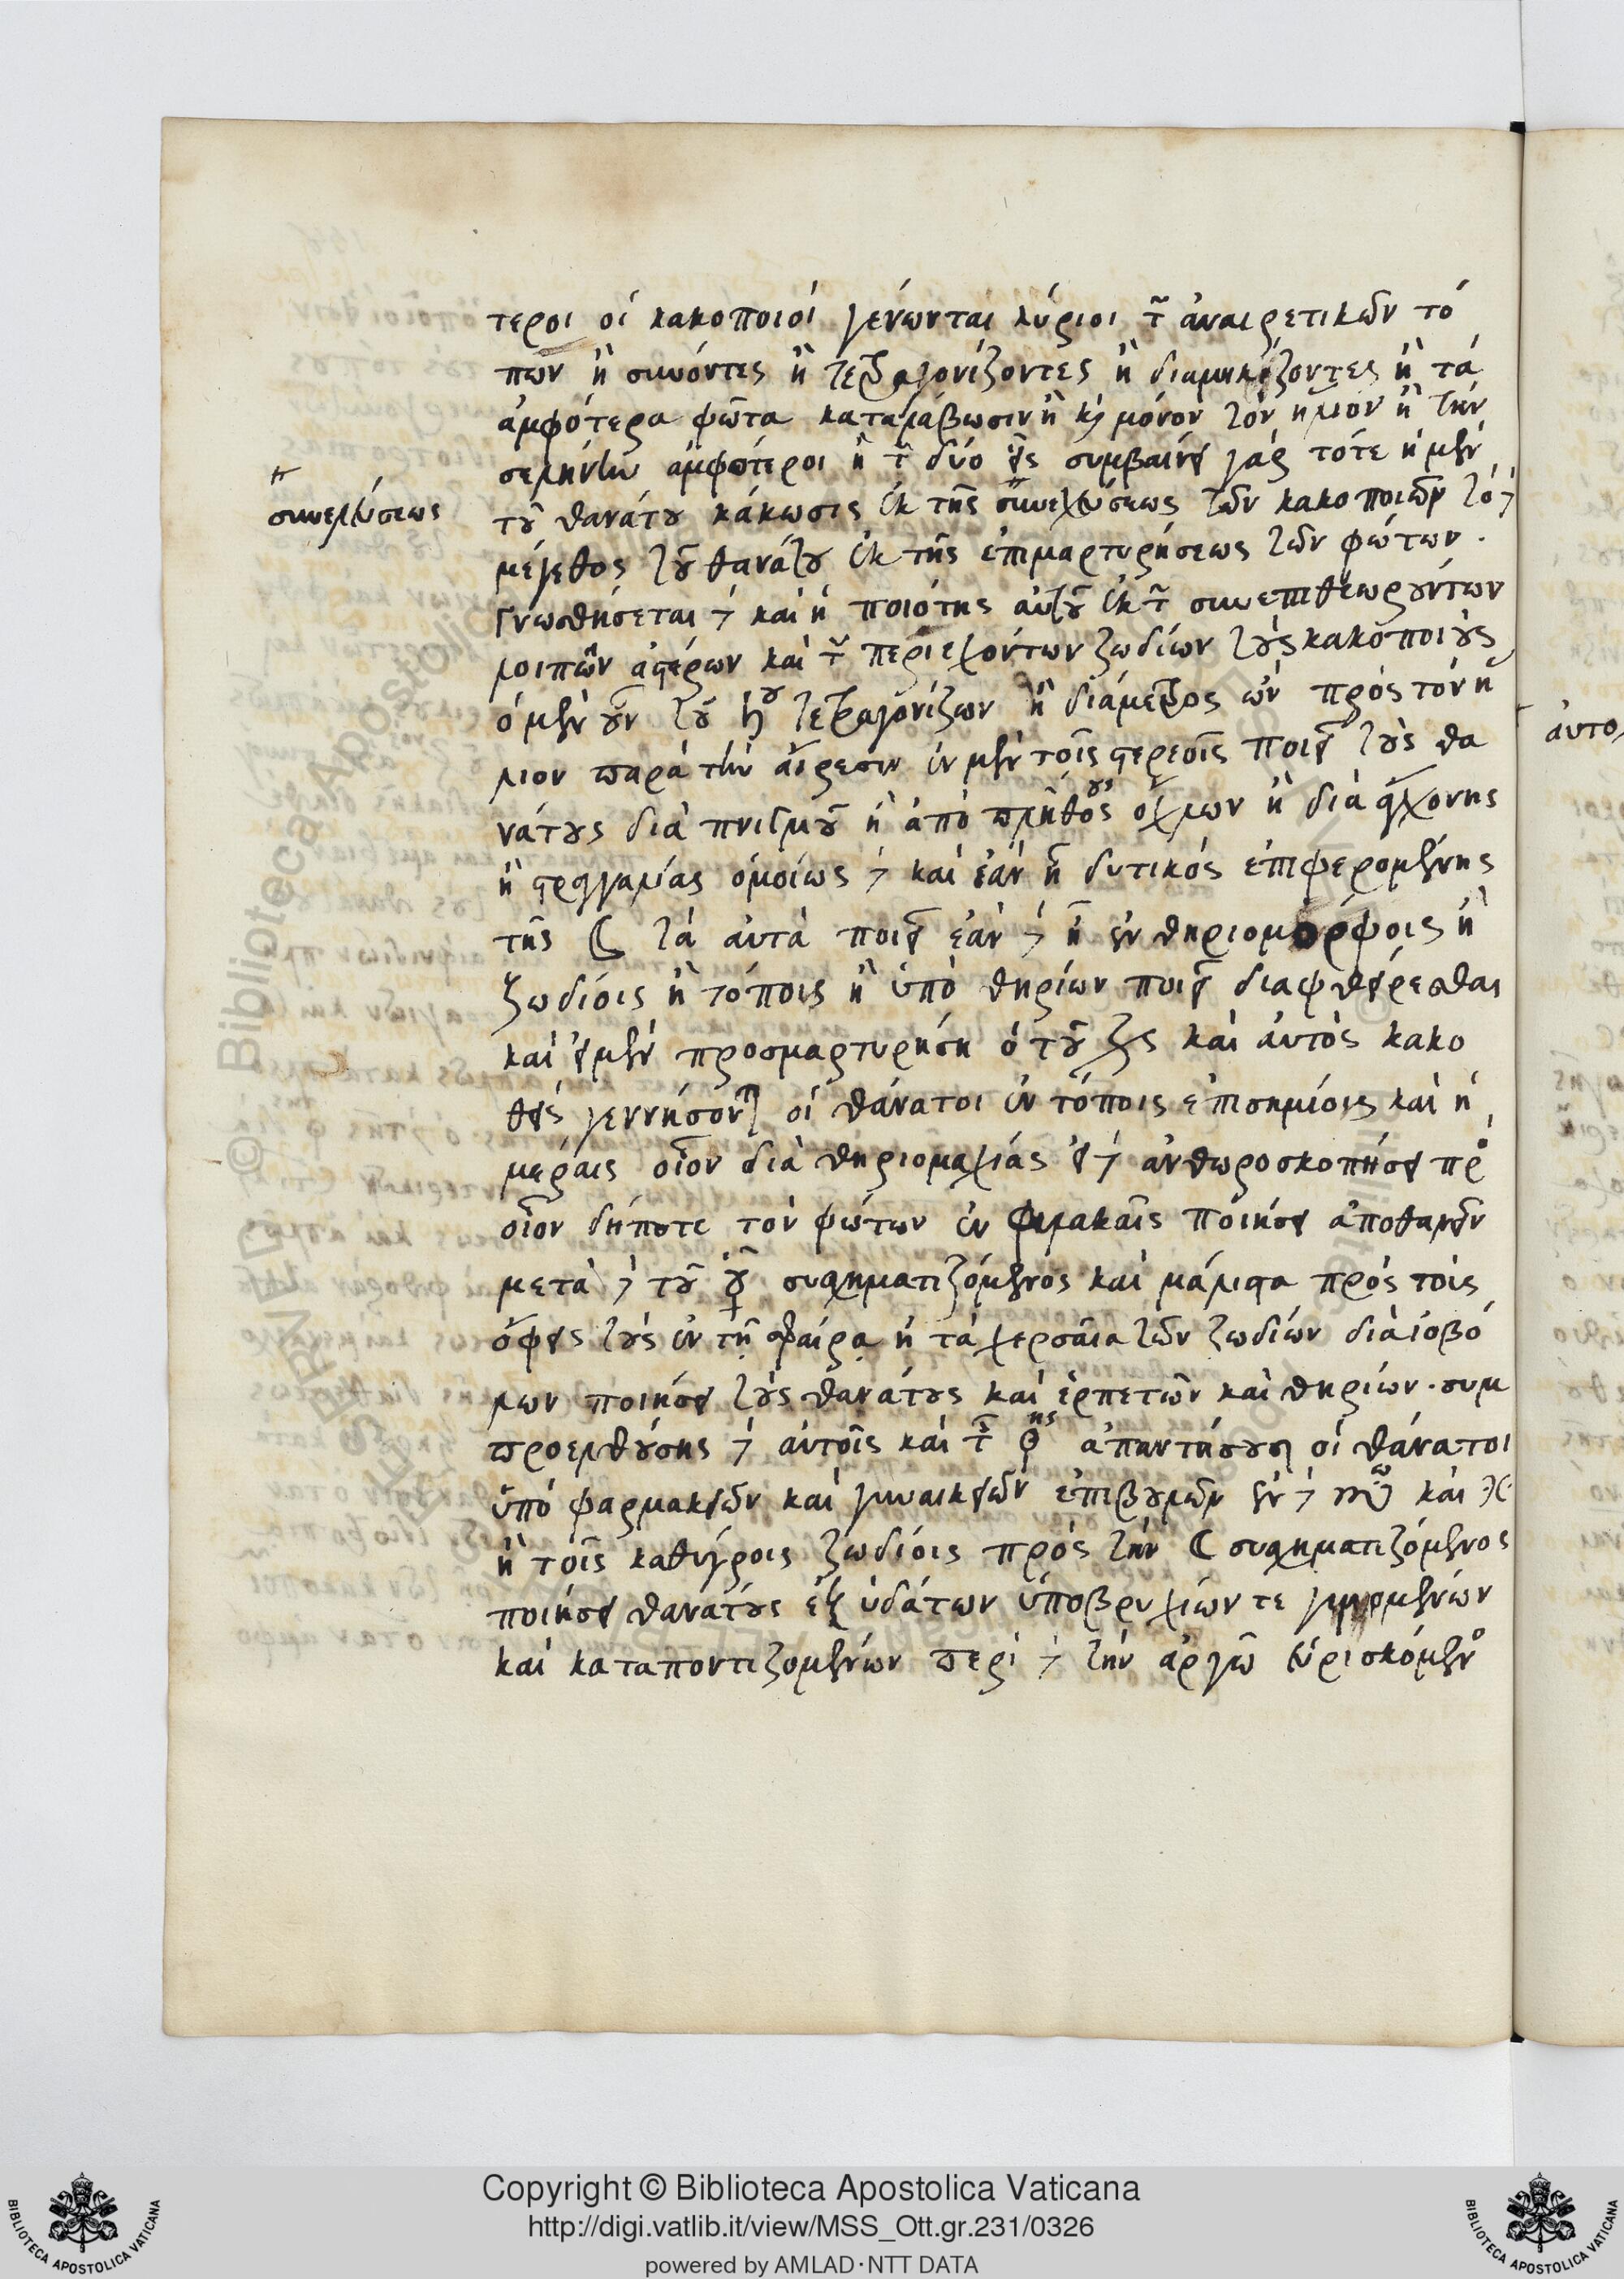 τεροι οἱ κακοποιοί γένωνται κύριοι τῶν ἀναιρετικῶν τό
πων ἢ συνόντες ἢ τετραγονίζοντες ἢ διαμηκίζοντες ἢ τά
ἀμφότερα φῶτα καταλάβωσιν ἢ καὶ μόνον τόν ἥλιον ἢ τήν
σελήνην ἀμφότεροι ἢ τῶν δύο εἷς συμβαίνει γάρ τότε ἡ μέν
τοῦ θανάτου κάκωσις ἐκ τῆς συνεχύσεως τῶν κακοποιῶν τό δέ
συνελεύσεως
μέγεθος τοῦ θανάτου ἐκ τῆς ἐπιμαρτυρήσεως τῶν φώτων.
Γνωσθήσεται δέ καὶ ἡ ποιότης αὐτοῦ ἐκ τῶν συνεπιθεωρούντων
λοιπῶν ἀστέρων καὶ τῶν περιεχόντων ζωδίων τούς κακοποιούς
ὁ μὲν οὖν τοῦ ♄ου τετραγονίζων ἢ διάμετρος ὤν πρὸς τόν ἥ
λιον παρὰ τὴν αἵρεσιν ἐν μὲν τοῖς στερεοῖς ποιεῖ τούς θα
νάτους διὰ πνιγμοῦ ἢ ἀπό πλήθους ὄχλων ἢ διὰ ἀγχόνης
ἢ στραγγαλίας ὁμοίως δέ καὶ ἐάν ᾖ δυτικός ἐπιφερομένης
τῆς ☾ τά αὐτὰ ποιεῖ ἐάν δέ ᾖ ἐν θηριομόρφοις ἢ
ζωδίοις ἢ τόποις ἢ ὑπὸ θηρίων ποιεῖ διαφθείρεσθαι
καὶ εἰ μέν προσμαρτυρήσῃ ὁ τοῦ ♃ς καὶ αὐτὸς κακο
θείς γεννήσονται οἱ θάνατοι ἐν τόποις ἐπισημίοις καὶ ἡ
μέραις οἷον διὰ θηριομαχίας εἰ δέ ἀνθωροσκοπήσει πρὸ
οἷον δήποτε τὸν φώτων ἐν φυλακαῖς ποιήσει ἀποθανεῖν
μετὰ δέ τοῦ ☿οῦ συσχηματιζόμενος καὶ μάλιστα πρός τοις
ὄφεις τούς ἐν τῇ σφαίρᾳ ἢ τὰ χερσαία τῶν ζωδίων διὰ ἰοβό
λων ποιήσει τούς θανάτους καὶ ἑρπετῶν καὶ θηρίων. συμ
προελθούσης δέ αὐτοῖς καὶ τῆς ♀ης ἀπηντήσουσι οἱ θάνατοι
ὑπό φαρμακειῶν καὶ γυναικειῶν ἐπιβουλῶν ἐν δέ ♍ῳ καὶ ♓
ἢ τοῖς καθύγροις ζωδίοις πρὸς τήν ☾ συσχηματιζόμενος
ποιήσει θανάτους ἐξ ὑδάτων ὑποβρυχίων τε γινομένων
καὶ καταποντιζομένων περί δέ τήν ἀργῶ εὑρισκόμενος
αὐτο
Copyright © Biblioteca Apostolica Vaticana
http://digi.vatlib.it/view/MSS_Ott.gr.231/0326
powered by AMLAD·NTT DATA
BIBLIOTECA APOSTOLICA VATICANA
BIBLIOTECA APOSTOLICA VATICANA